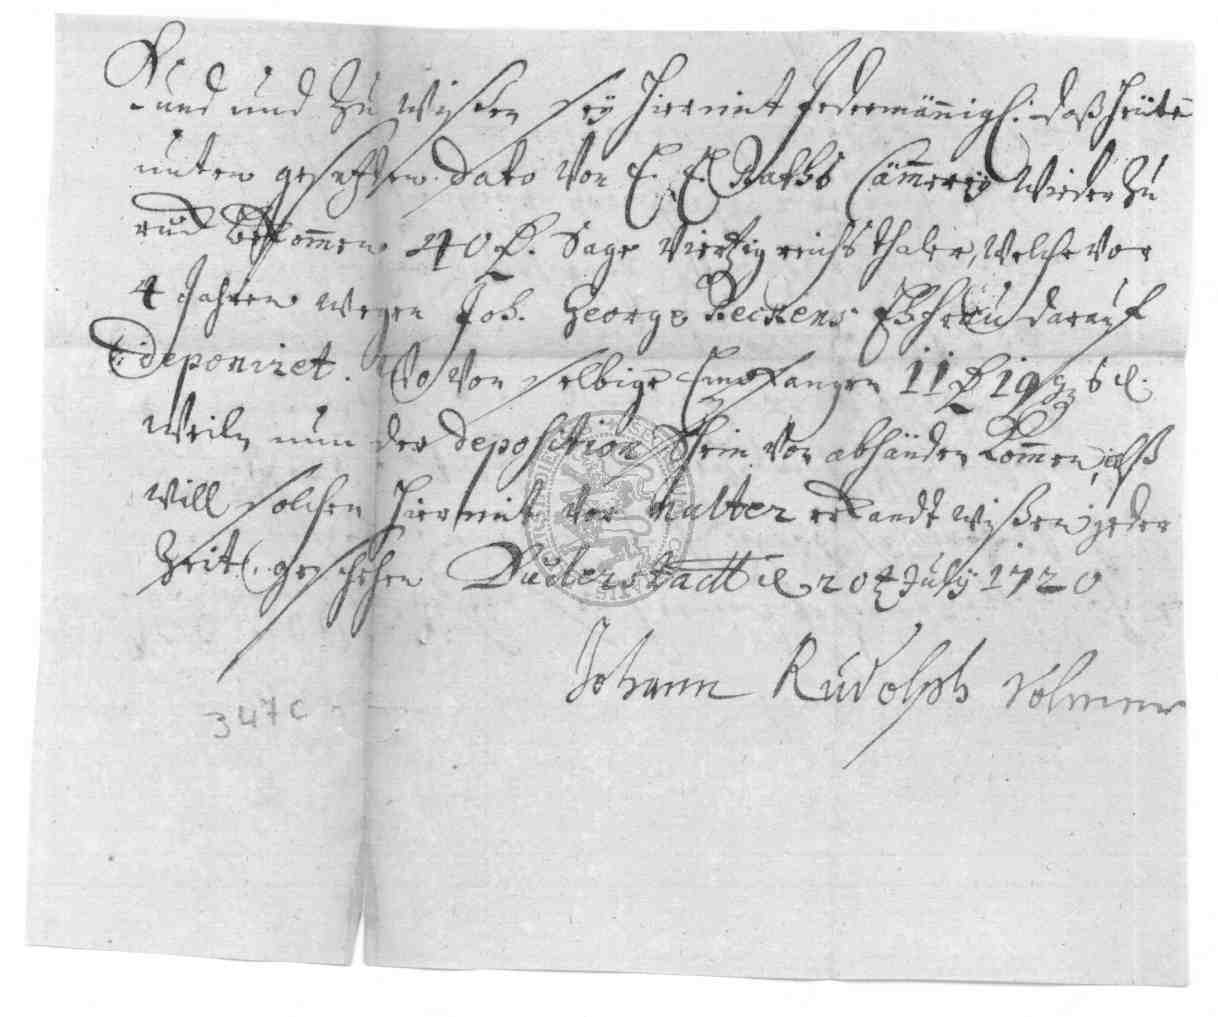 Kund und Zu wissen seÿ hiermit Jedermännigl: daß heüte
unten gesetzten dato Von E. E. Raths Cämmereÿ Wieder Zu
rück bekommen 40 Rthlr. Sage Viertzig reichsthaler, Welche vor
4 Jahren wegen Joh. George Beckens Ehfrau darauf
deponiret. Wo Von selbige Empfangen 11 Rthlr 19 gg 6 d.
Weiln nun der deposition Schein Von abhänden kommen, alß
will solchen hiermit vor nulter erkandt wißen jeder
Zeit. geschehen Duderstadt d. 20t July 1720
Johann Rudolph Volmer
347c